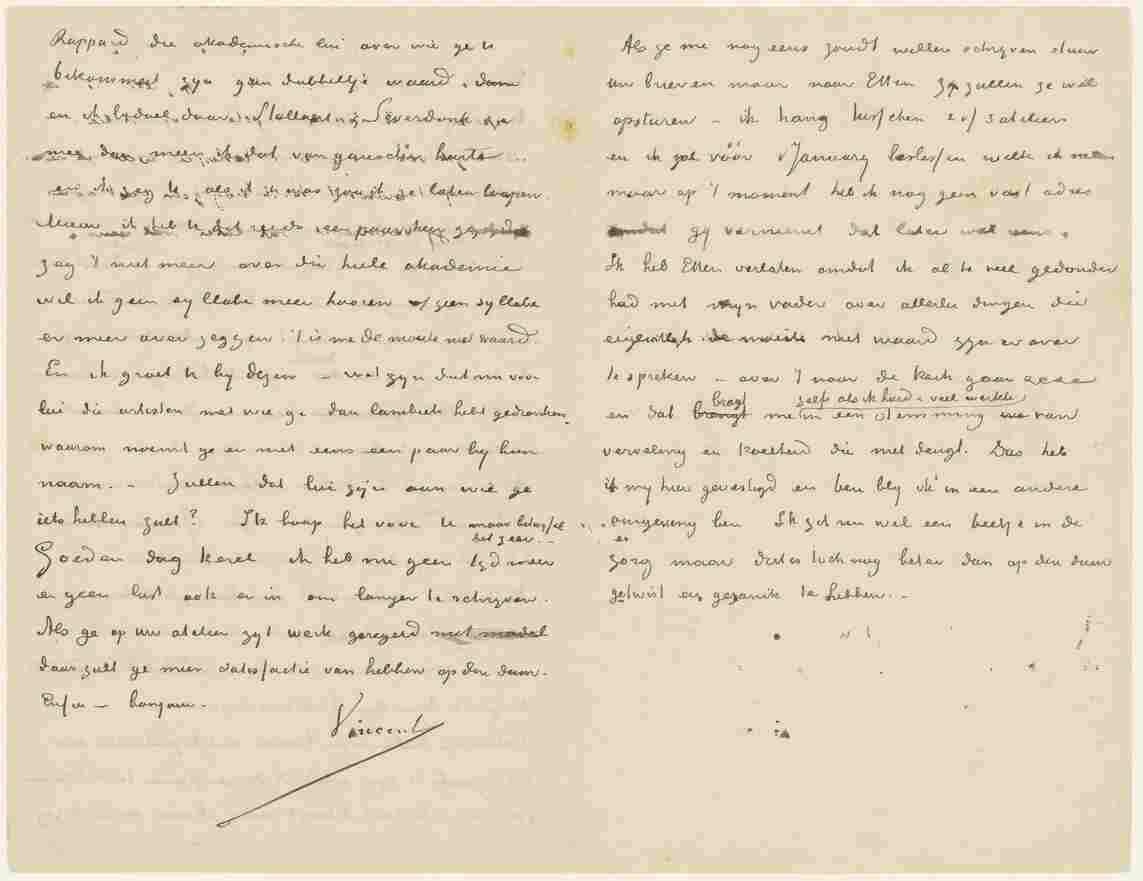 Rappard die akademische lui over wie ge U
bekommert zyn geen dubbeltje waard. dan
en ik bedoel daar Stallaert & Severdonk
mee, dan meen ik dat van ganscher harte ...
en ik zeg U, als ik U was zou ik ze laten loopen.
Maar ik heb U dat reeds een paar keer gezegd
zeg 't niet meer over die heele akademie
wil ik geen syllabe meer hooren of geen syllabe
er meer over zeggen. 't is me de moeite niet waard.
En ik groet U by dezen – wat zyn dat nu voor
lui die artisten met wie ge dan lambiek hebt gedronken,
waarom noemt ge er niet eens een paar by hun
naam. – Zullen dat lui zyn aan wie ge
iets hebben zult? Ik hoop het voor U maar betwyfel
het zeer. –
Goeden dag kerel ik heb nu geen tyd meer
en geen lust ook er in om langer te schryven.
Als ge op uw atelier zyt werk geregeld met model
daar zult ge meer satisfactie van hebben op den duur.
Enfin – bonjour.
Vincent
Als ge me nog eens zoudt willen schryven stuur
uw brieven maar naar Etten zy zullen ze wel
opsturen – ik hang tusschen 2 of 3 ateliers
en ik zal vóór 1 January beslissen welk ik neem
maar op 't moment heb ik nog geen vast adres
omdat gy verneemt dat later wel eens.
Ik heb Etten verlaten omdat ik al te veel gedonder
had met myn vader over allerlei dingen die
eigentlyk de moeite niet waard zyn er over
te spreken – over 't naar de kerk gaan &c&c
bragt zelfs als ik hard & veel werkte
en dat brengt me in een stemming van
verveling en koelheid die niet deugt. Dus heb
ik my hier gevestigd en ben bly ik in een andere
omgeving ben. Ik zit nu wel een beetje in de
zorg maar dat is toch nog beter dan op den duur
getwist en gezanik te hebben. –